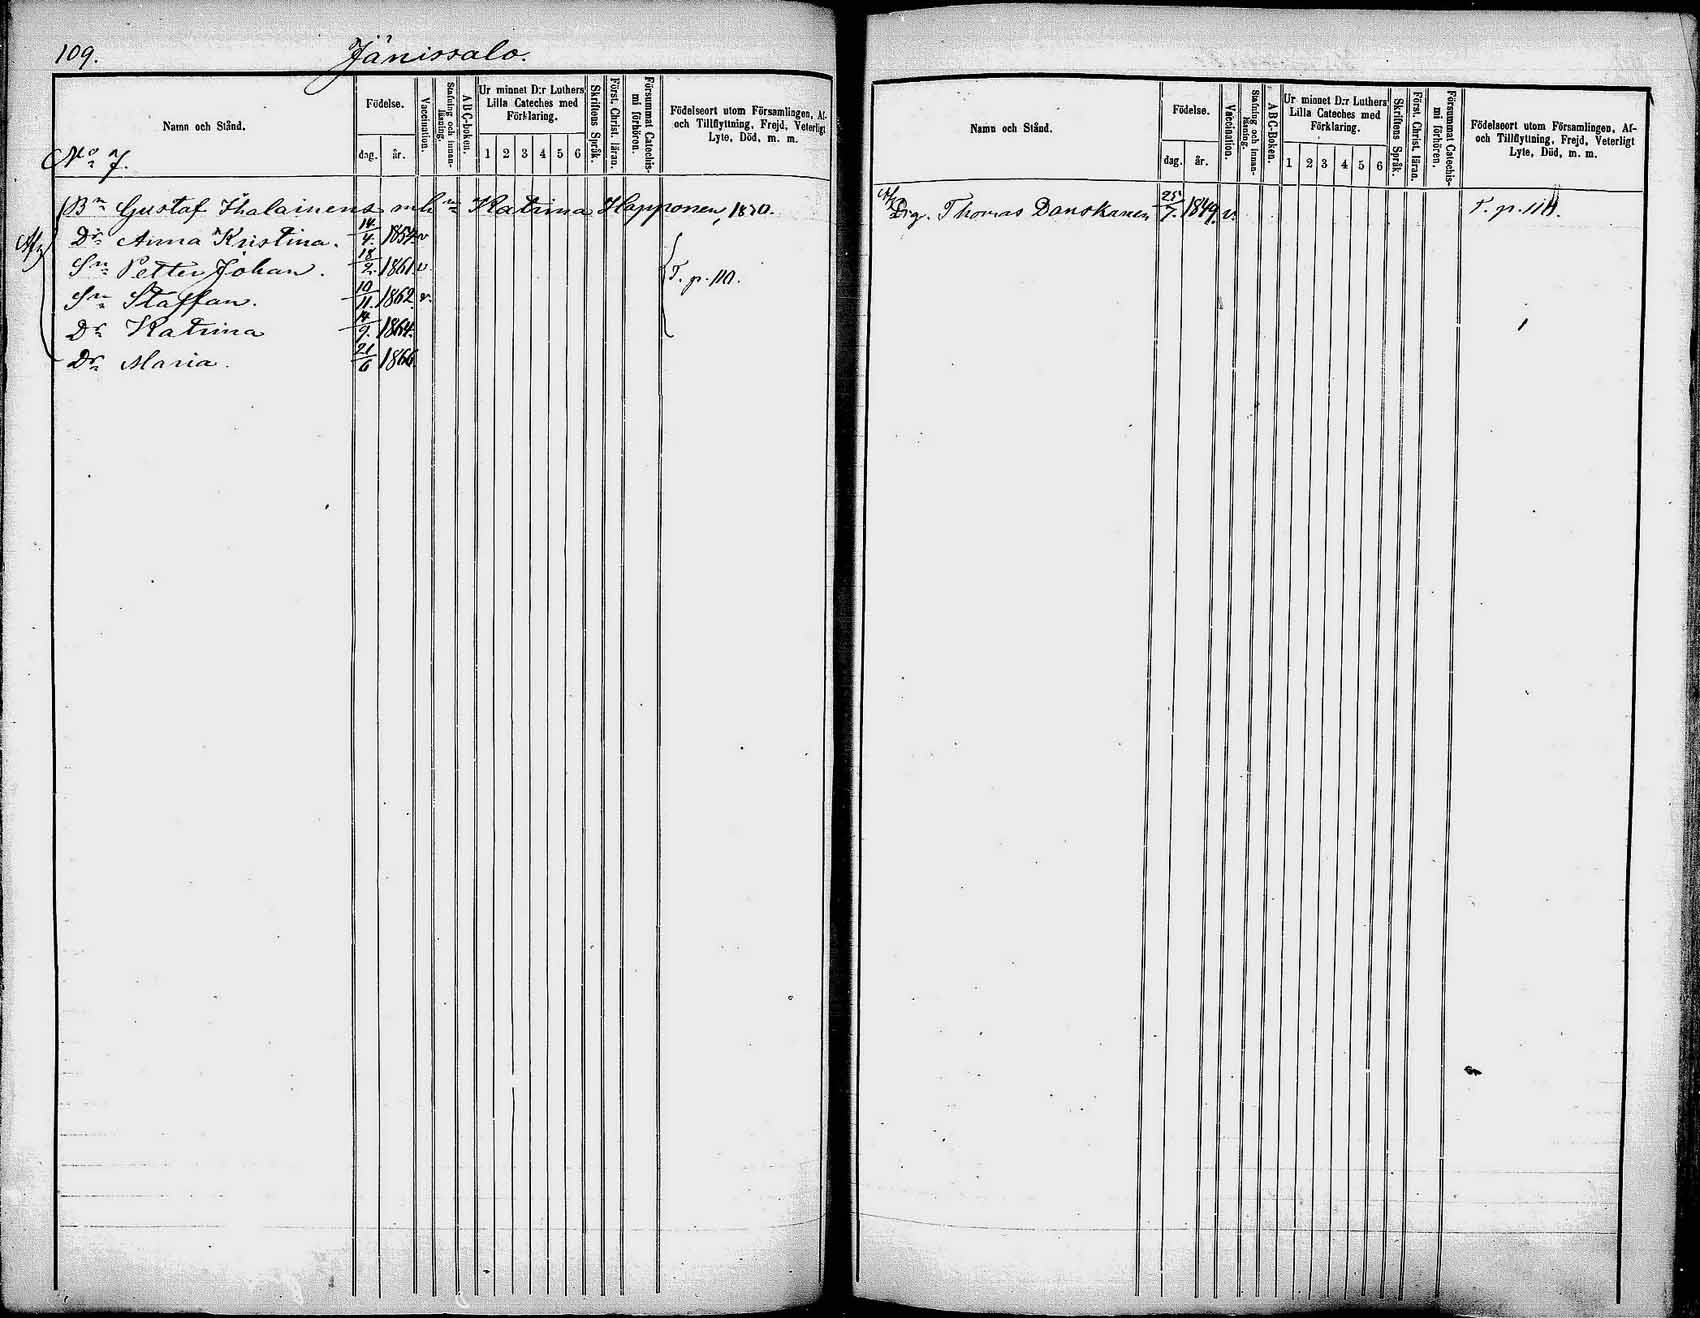 109. Jänissalo.
Namn och Stånd.
Födelse.
dag. år.
Vaccination.
Stafning och innan-läsning.
A B C-boken.
Ur minnet D:r Luthers Lilla Cateches med Förklaring.
1 2 3 4 5 6
Skriftens Språk.
Först. Christ. läran.
Försummat Catechis-mi förhören.
Födelseort utom Församlingen, Af-
och Tillflyttning, Frejd, Veterligt
Lyte, Död, m. m.
No 7.
Bn Gustaf Ihalainens Katrina Happonen, 1870.
Dr Anna Kristina. 14/4. 1854 v
Sn Petter Johan. 18/2. 1861 v
T. p. 110.
Sn Staffan. 10/11. 1862. v.
Dr Katrina 1864.
Dr Maria. 21/6 1866
Namn och Stånd.
Födelse.
dag. år.
Vaccination.
Stafning och innan-läsning.
A B C-Boken.
Ur minnet D:r Luthers Lilla Cateches med Förklaring.
1 2 3 4 5 6
Skriftens Språk.
Först. Christ. läran.
Försummat Catechis-mi förhören.
Födelseort utom Församlingen, Af-
och Tillflyttning, Frejd, Veterligt
Lyte, Död, m. m.
Drg. Thomas Danskanen 25/7. 1849. v. T. p. 110.